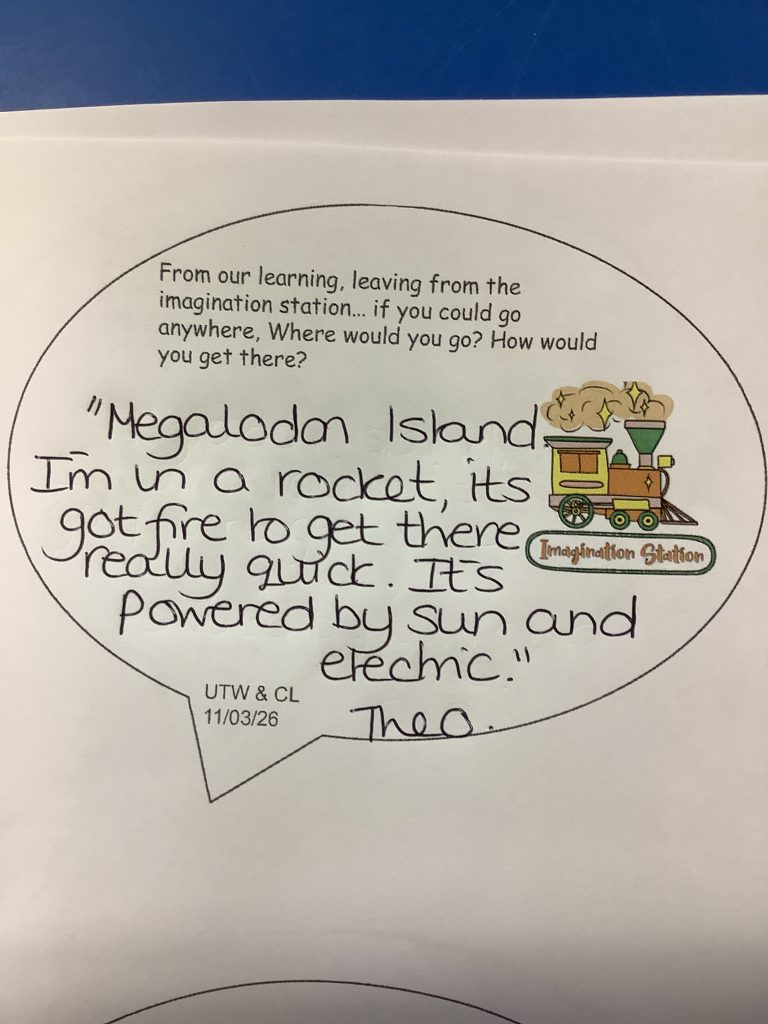 From our learning, leaving from the
imagination station... if you could go
anywhere, Where would you go? How would
you get there?
"Megalodon Island
I'm in a rocket, its
got fire to get there
really quick. It's
powered by sun and
electric."
Imagination Station
UTW & CL
11/03/26
Theo.